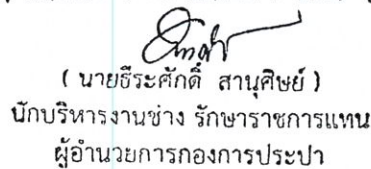 ( นายธีระศักดิ์ สานุศิษย์ )
นักบริหารงานช่าง รักษาราชการแทน
ผู้อำนวยการกองการประปา